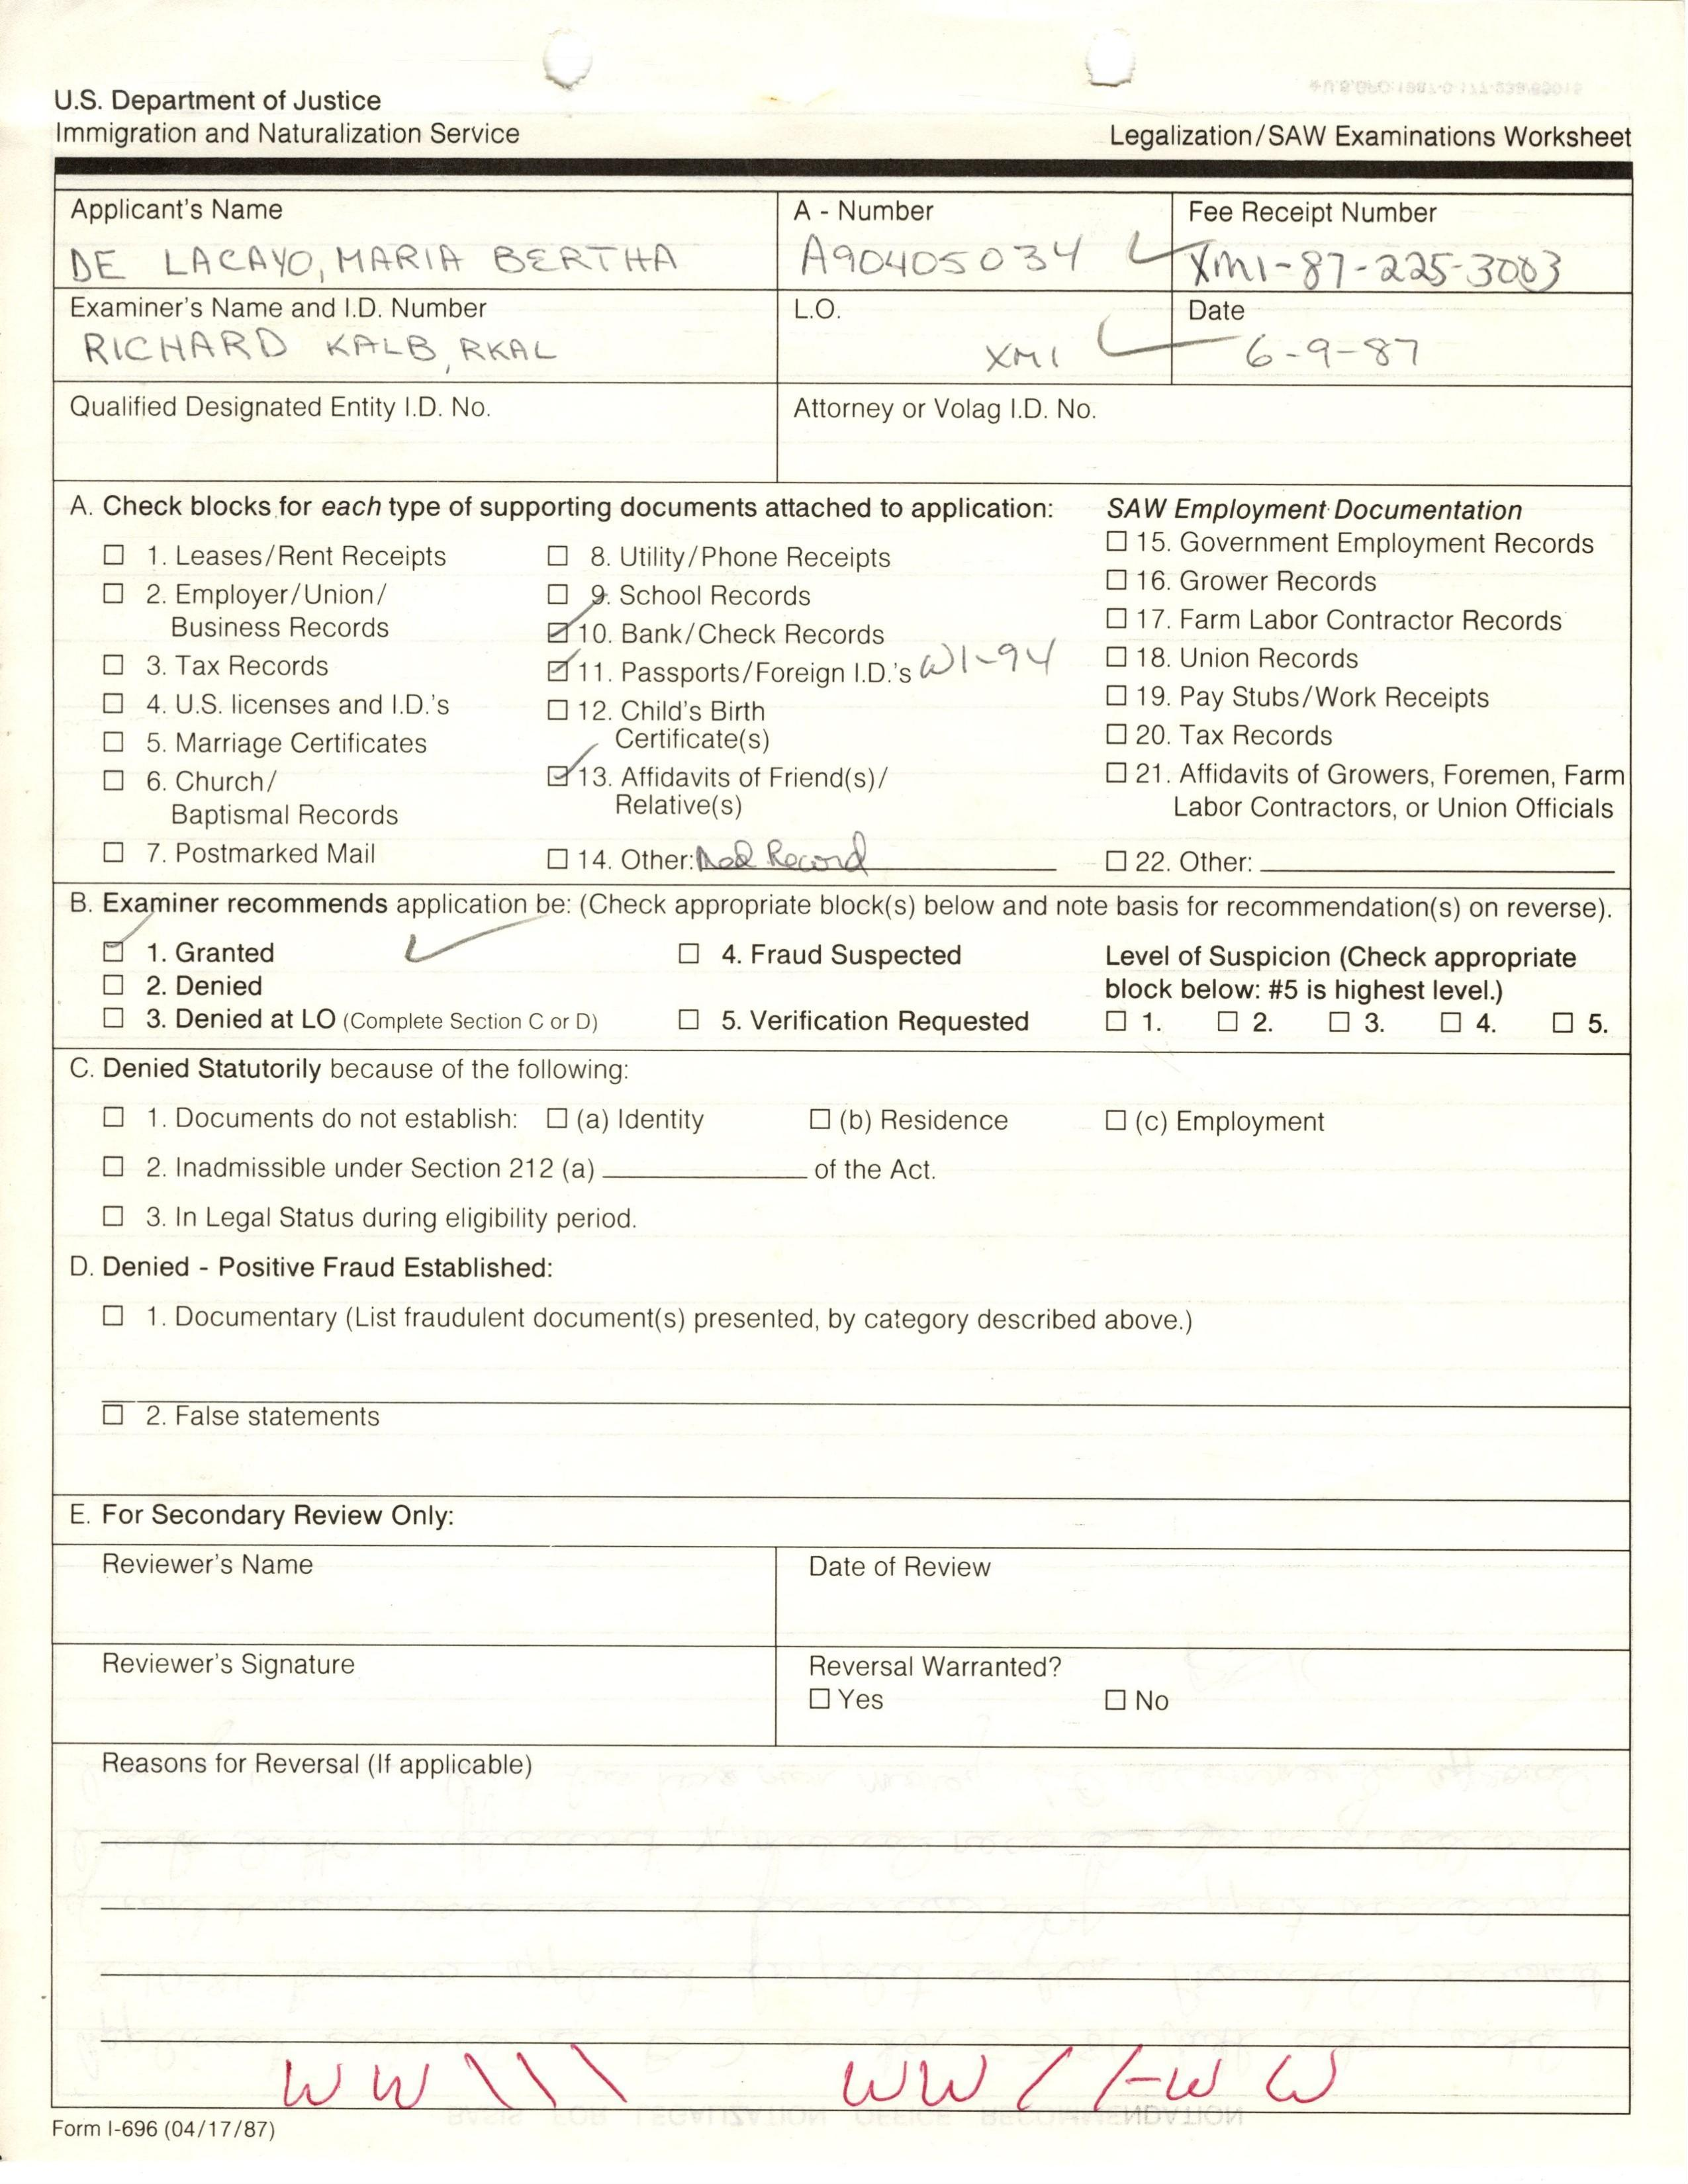 U.S. Department of Justice
Immigration and Naturalization Service
Legalization/SAW Examinations Worksheet
Applicant's Name
DE LACAYO, MARIA BERTHA
A - Number
A90405034
Fee Receipt Number
XMI-87-225-3003
Examiner's Name and I.D. Number
RICHARD KALB, RKAL
L.O.
XMI
Date
6-9-87
Qualified Designated Entity I.D. No.
Attorney or Volag I.D. No.
A. Check blocks for each type of supporting documents attached to application:
☐ 1. Leases/Rent Receipts
☐ 2. Employer/Union/
Business Records
☐ 3. Tax Records
☐ 4. U.S. licenses and I.D.'s
☐ 5. Marriage Certificates
☐ 6. Church/
Baptismal Records
☐ 7. Postmarked Mail
☐ 8. Utility/Phone Receipts
☐ 9. School Records
☑ 10. Bank/Check Records
☑ 11. Passports/Foreign I.D.'s W1-94
☐ 12. Child's Birth
Certificate(s)
☑ 13. Affidavits of Friend(s)/
Relative(s)
☐ 14. Other: Med Record
SAW Employment Documentation
☐ 15. Government Employment Records
☐ 16. Grower Records
☐ 17. Farm Labor Contractor Records
☐ 18. Union Records
☐ 19. Pay Stubs/Work Receipts
☐ 20. Tax Records
☐ 21. Affidavits of Growers, Foremen, Farm
Labor Contractors, or Union Officials
☐ 22. Other:
B. Examiner recommends application be: (Check appropriate block(s) below and note basis for recommendation(s) on reverse).
☑ 1. Granted
☐ 2. Denied
☐ 3. Denied at LO (Complete Section C or D)
☐ 4. Fraud Suspected
☐ 5. Verification Requested
Level of Suspicion (Check appropriate
block below: #5 is highest level.)
☐ 1. ☐ 2. ☐ 3. ☐ 4. ☐ 5.
C. Denied Statutorily because of the following:
☐ 1. Documents do not establish: ☐ (a) Identity ☐ (b) Residence ☐ (c) Employment
☐ 2. Inadmissible under Section 212 (a) of the Act.
☐ 3. In Legal Status during eligibility period.
D. Denied - Positive Fraud Established:
☐ 1. Documentary (List fraudulent document(s) presented, by category described above.)
☐ 2. False statements
E. For Secondary Review Only:
Reviewer's Name
Date of Review
Reviewer's Signature
Reversal Warranted?
☐ Yes ☐ No
Reasons for Reversal (If applicable)
Form I-696 (04/17/87)